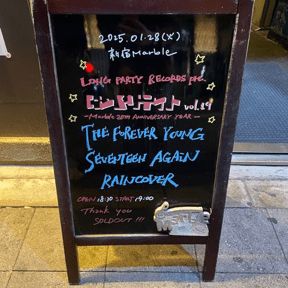 2025.01.28(火)
新宿Marble
LONG PARTY RECORDS pre.
vol.
-Marble 20th ANNIVERSARY YEAR-
THE FOREVER YOUNG
SEVENTEEN AGAiN
RAINCOVER
OPEN 18:30 START 19:00
Thank you
SOLDOUT!!!